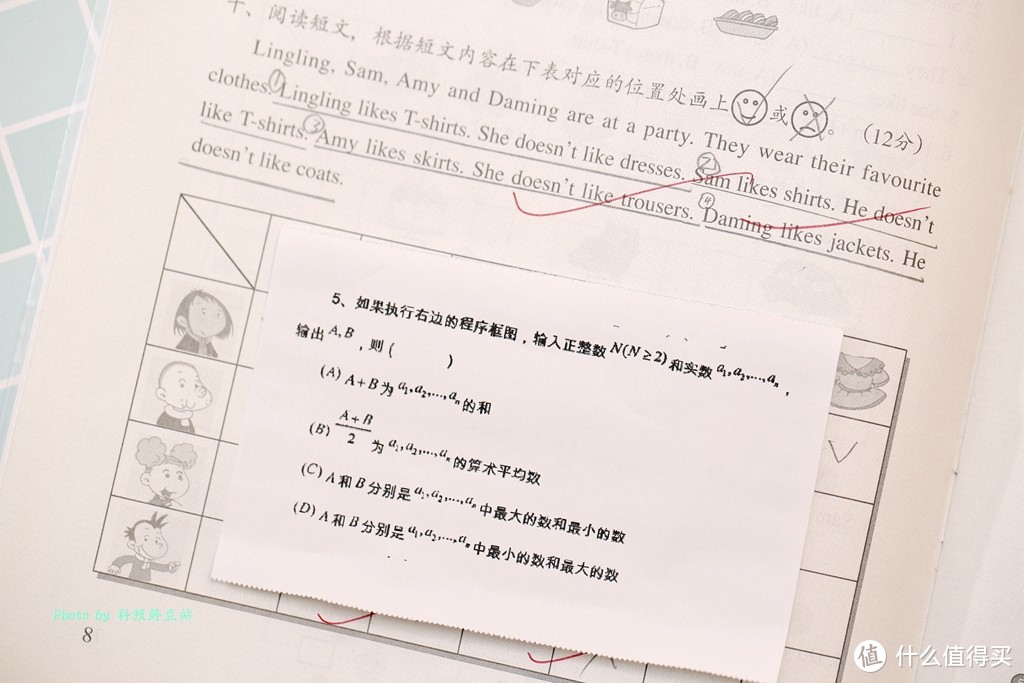 十、阅读短文，根据短文内容在下表对应的位置处画上 或 。（12分）
Lingling, Sam, Amy and Daming are at a party. They wear their favourite
clothes. ①Lingling likes T-shirts. She doesn't like dresses. ②Sam likes shirts. He doesn't
like T-shirts. ③Amy likes skirts. She doesn't like trousers. ④Daming likes jackets. He
doesn't like coats.
5、如果执行右边的程序框图，输入正整数 N(N≥2) 和实数 a₁,a₂,...,aₙ，
输出 A,B，则（ ）
(A) A+B 为 a₁,a₂,...,aₙ 的和
(B) (A+B)/2 为 a₁,a₂,...,aₙ 的算术平均数
(C) A 和 B 分别是 a₁,a₂,...,aₙ 中最大的数和最小的数
(D) A 和 B 分别是 a₁,a₂,...,aₙ 中最小的数和最大的数
Photo by 科技终点站
8
值 什么值得买